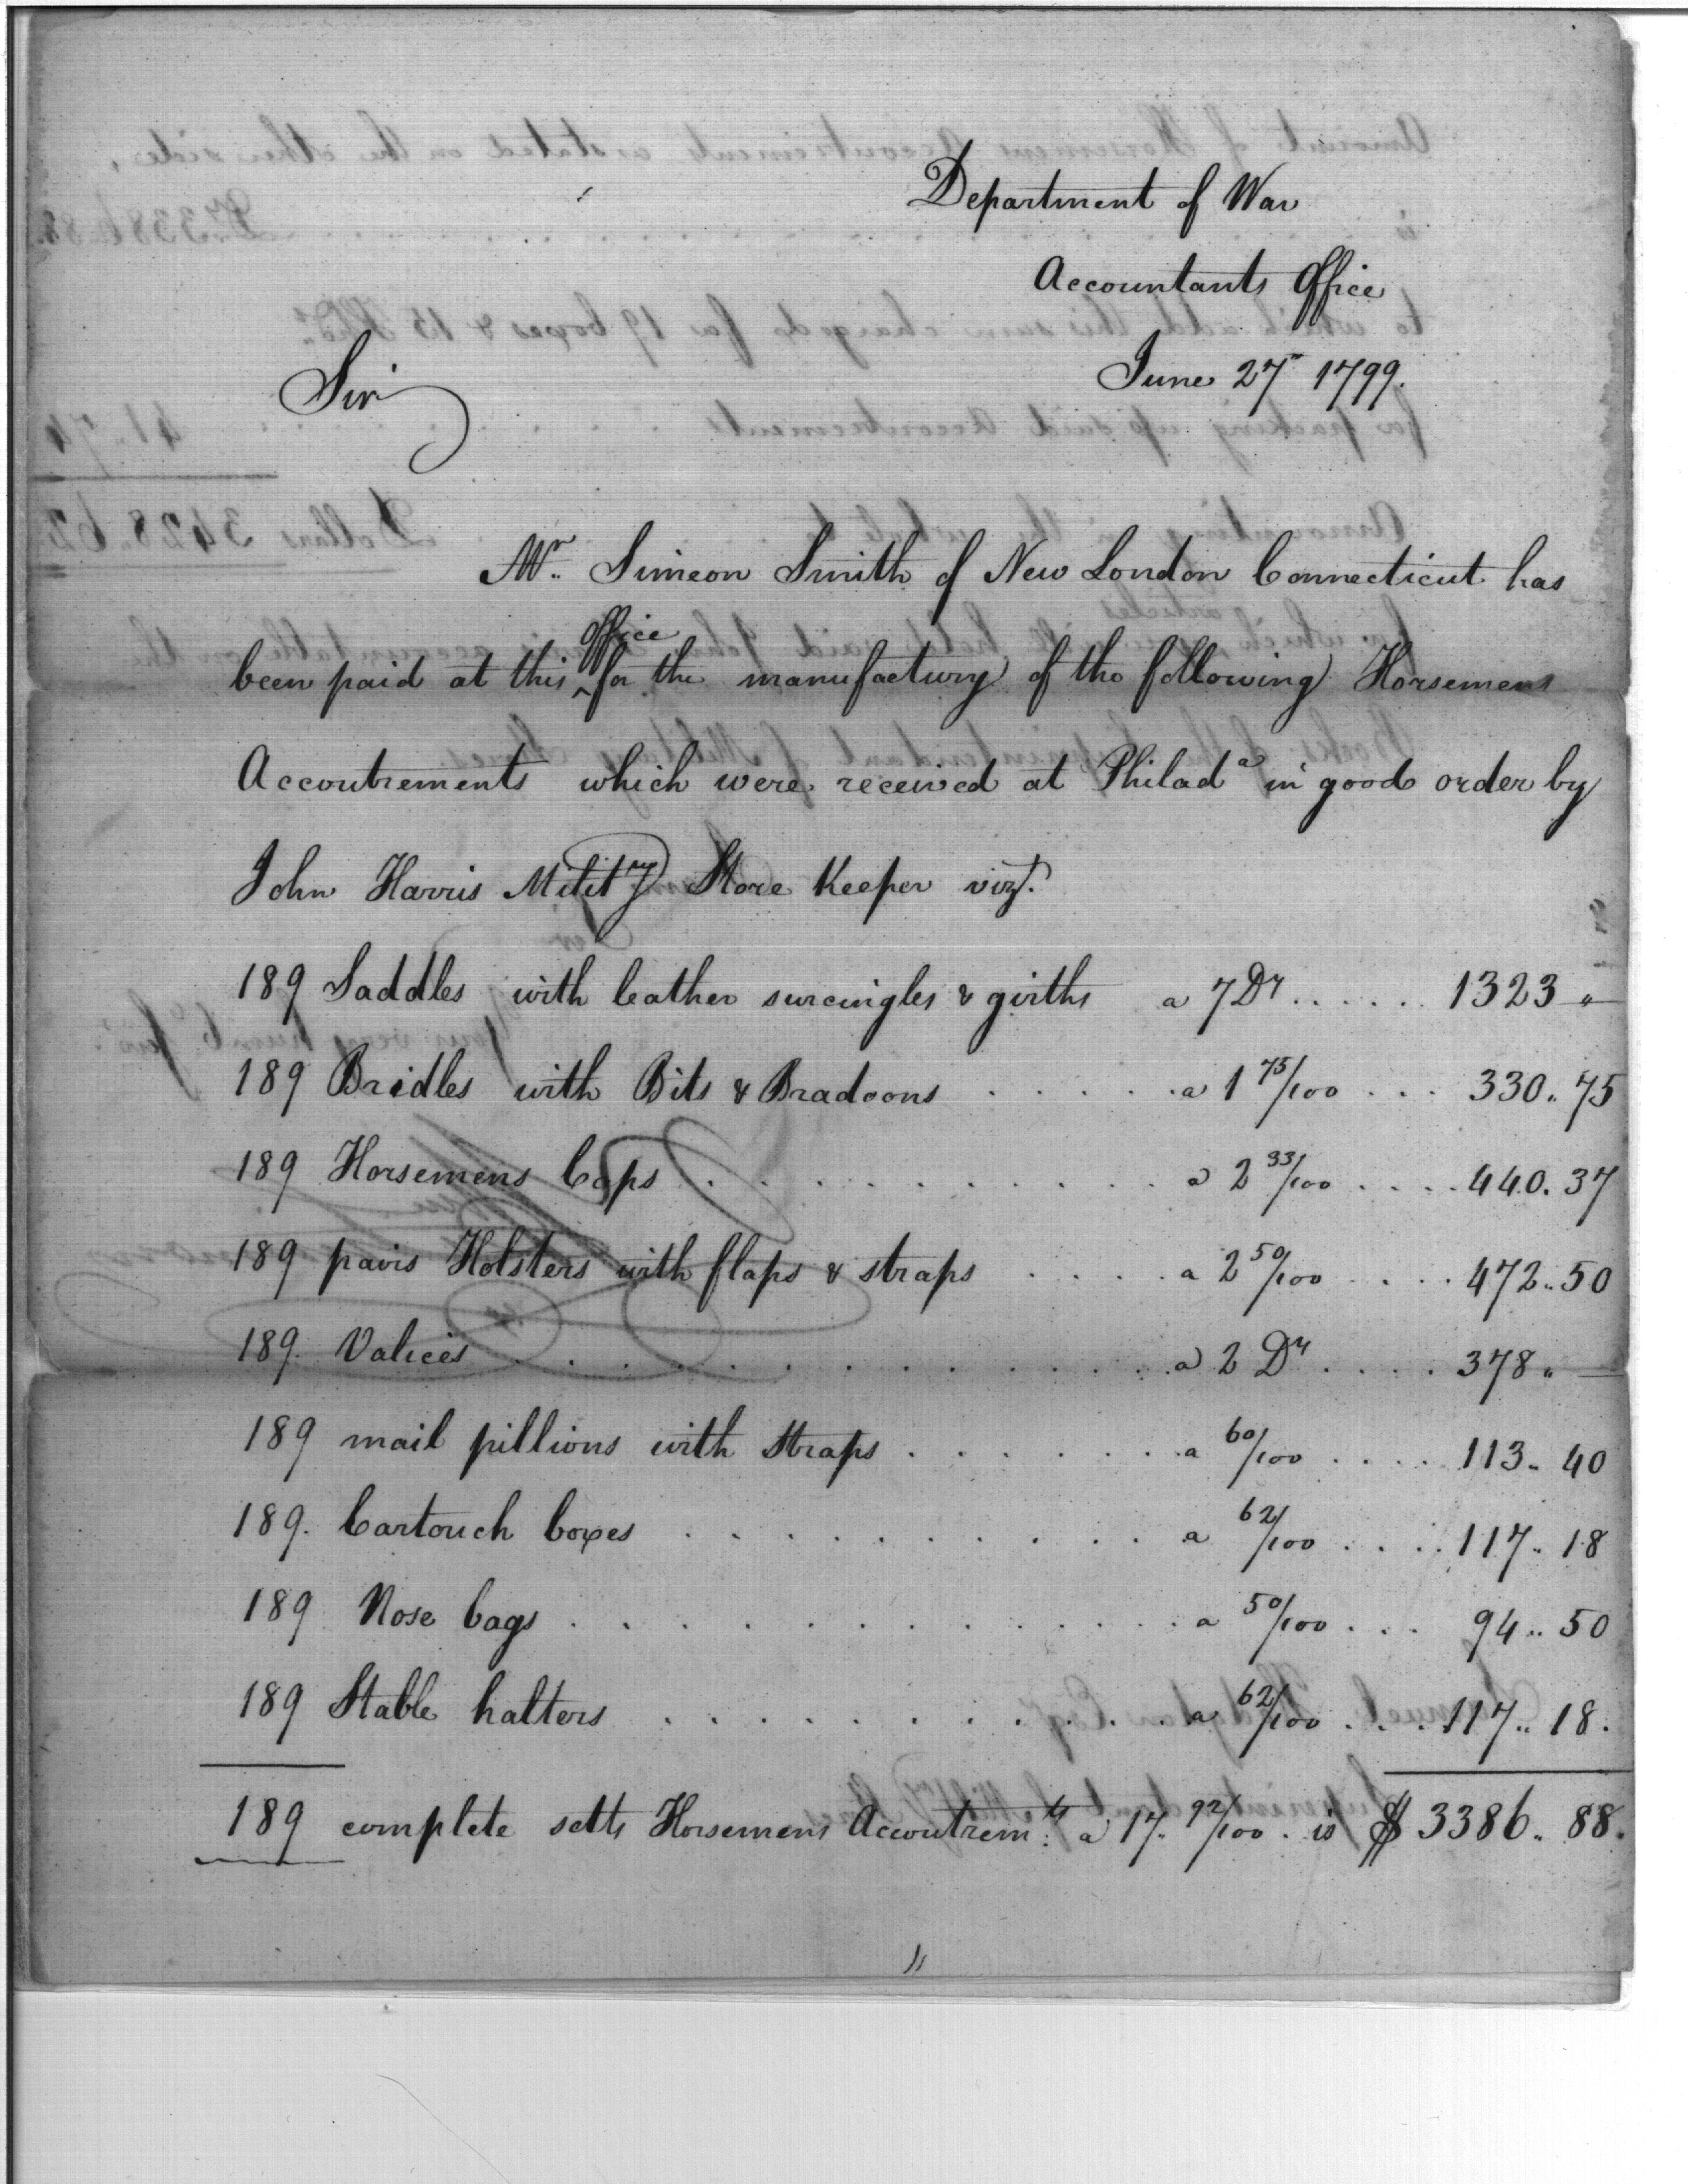 Department of War
Accountants Office
June 27th 1799.
Sir
Mr. Simeon Smith of New London Connecticut has
office
been paid at this ^ for the manufactury of the following Horsemens
Accoutrements which were received at Philada in good order by
John Harris Mility Store Keeper vizt.
189 Saddles with leather surcingles & girths a 7 Drs ...... 1323 "
189 Bridles with Bits & Bradoons ..... a 1 75/100 ... 330.. 75
189 Horsemens Caps .......... a 2 33/100 .... 440. 37
189 pairs Holsters with flaps & straps .... a 2 50/100 .... 472.. 50
189. Valices ............. a 2 Drs .... 378 " —
189 mail pillions with straps ...... a 60/100 .... 113.. 40
189. Cartouch boxes ......... a 62/100 .... 117.. 18
189 Nose bags ............ a 50/100 ... 94.. 50
189 Stable halters .......... a 62/100 .... 117.. 18.
189 complete setts Horsemens Accoutremts: a 17. 92/100. is $ 3386.. 88.